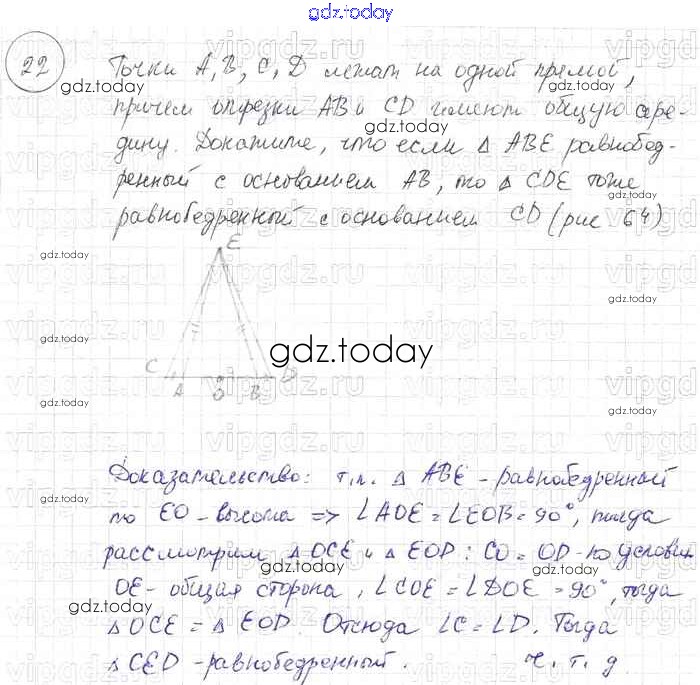 gdz.today
22
Точки A, B, C, D лежат на одной прямой,
причем отрезки AB и CD имеют общую сере-
дину. Докажите, что если △ ABE равнобед-
ренный с основанием AB, то △ CDE тоже
равнобедренный с основанием CD (рис 64)
E
gdz.today
C A O B D
Доказательство: т.к. △ ABE - равнобедренный
то EO - высота => ∠AOE = ∠EOB = 90°, тогда
рассмотрим △ OCE и △ EOD : CO = OD - по условию
OE - общая сторона, ∠COE = ∠DOE = 90°, тогда
△ OCE = △ EOD. Отсюда ∠C = ∠D. Тогда
△ CED - равнобедренный. ч. т. д